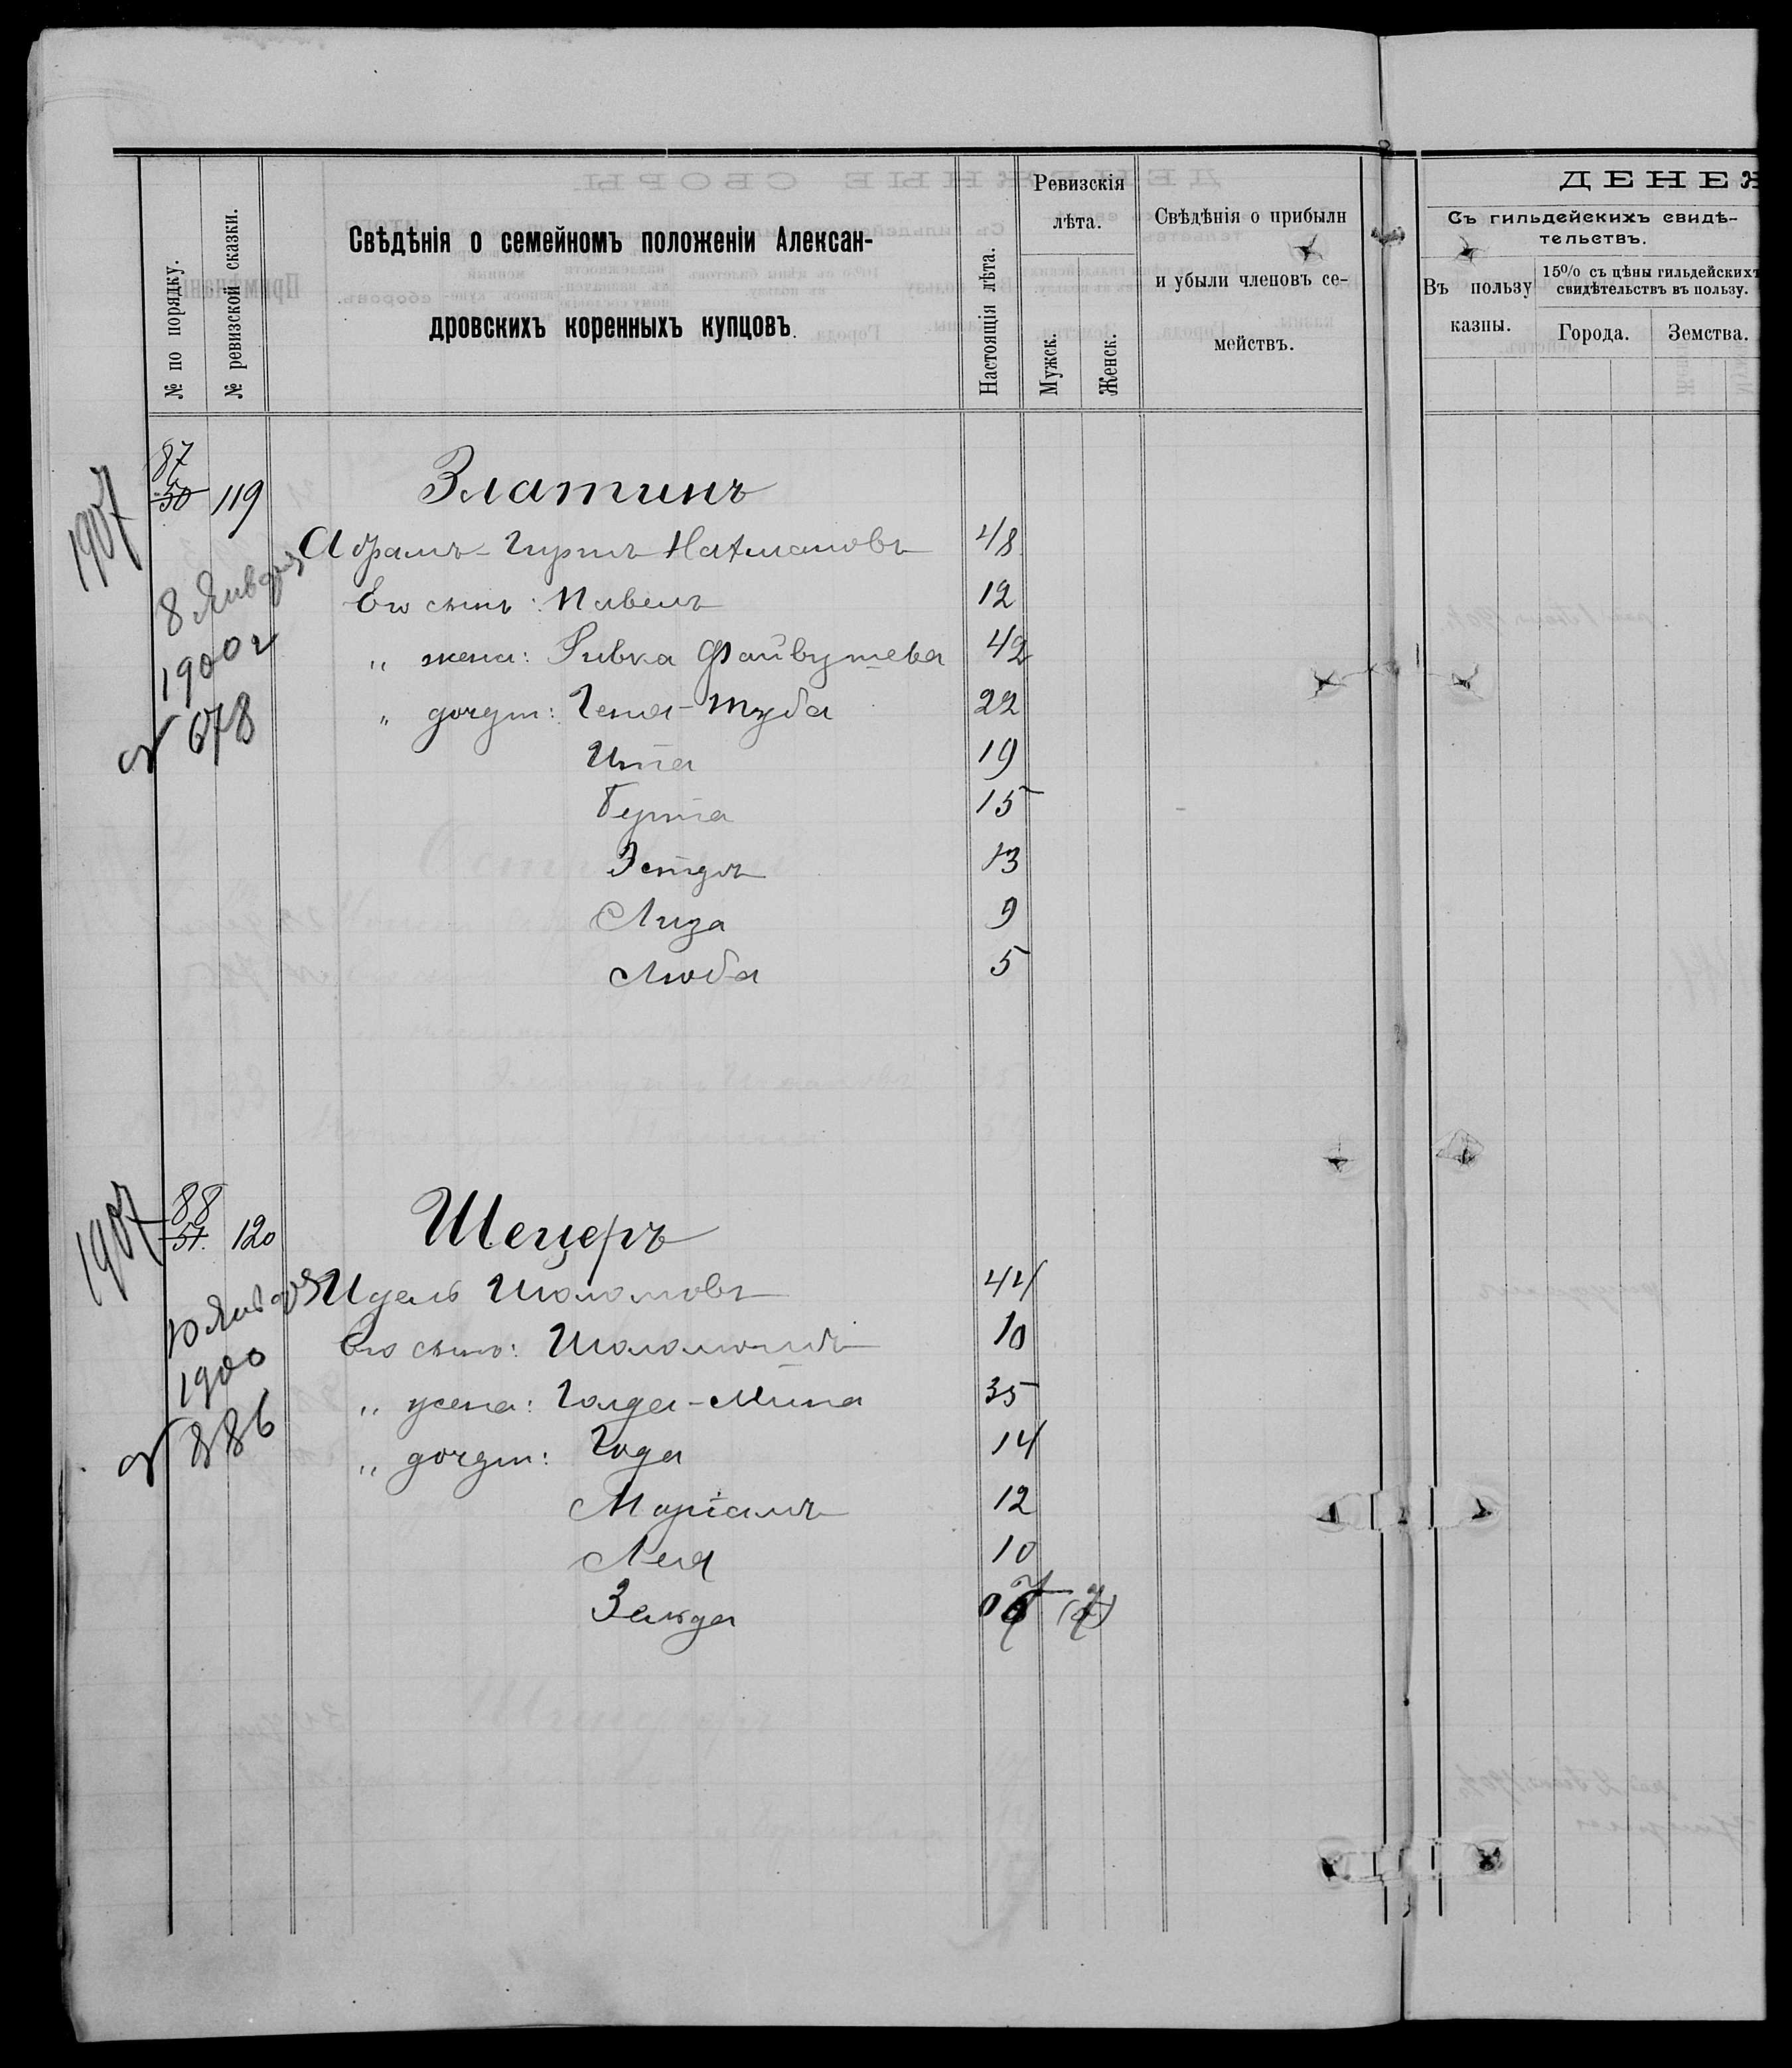 № по порядку.
№ ревизской сказки.
Свѣдѣнія о семейномъ положеніи Алексан-
дровскихъ коренныхъ купцовъ.
Настоящія лѣта.
Ревизскія
лѣта.
Мужск.
Женск.
Свѣдѣнія о прибыли
и убыли членовъ се-
мействъ.
ДЕНЕЖ
Съ гильдейскихъ свидѣ-
тельствъ.
Въ пользу
казны.
15% съ цѣны гильдейскихъ
свидѣтельствъ въ пользу.
Города.
Земства.
1907
87
50 119 Златинъ
Абрамъ-Гиршъ Нахмановъ 48
8 Января
Его сынъ: Павелъ 12
1900 г
„ жена: Ривка Файвушева 42
№ 678
„ дочери: Геня-Тауба 22
Ита 19
Берта 15
Эстеръ 13
Лиза 9
Люба 5
1907
88
51. 120 Шецеръ
Идель Шоломовъ 44
10 Января
Его сынъ: 10
1900
„ жена: Голда-Мина 35
№ 886
„ дочери: Года 14
Маріамъ 12
Лея 10
Зелда